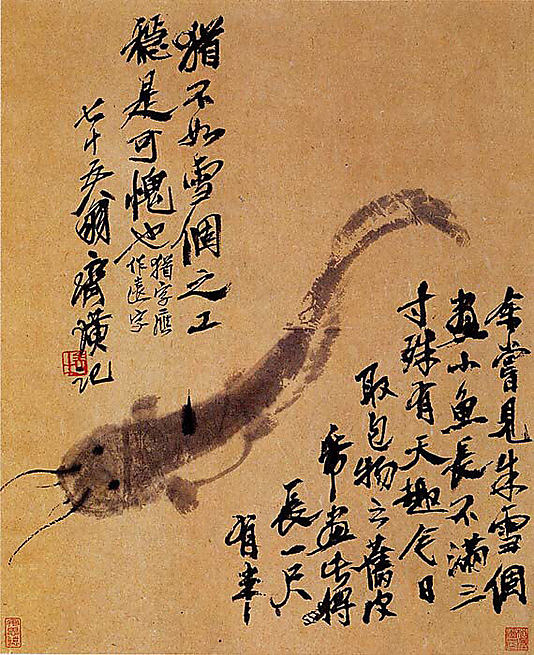 余嘗見朱雪個
畫小魚長不滿三
寸殊有天趣今日
取包物之舊皮
帋畫此
長一尺
有半
猶不如雪個之工
穩是可愧也
猶字應
作遠字
七十五翁齊璜記